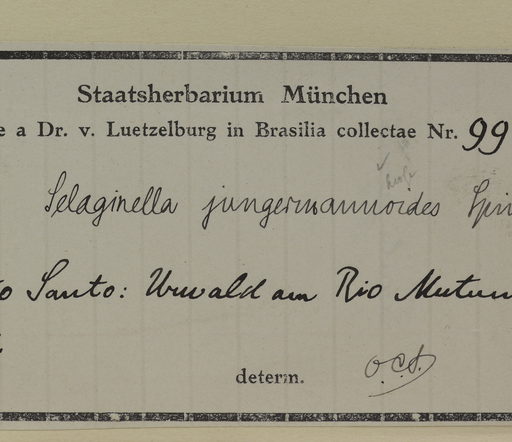 Staatsherbarium München
e a Dr. v. Luetzelburg in Brasilia collectae Nr. 99
Selaginella jungermannioides Spri
o Santo: Urwald am Rio Mutum
determ. O.C.S.